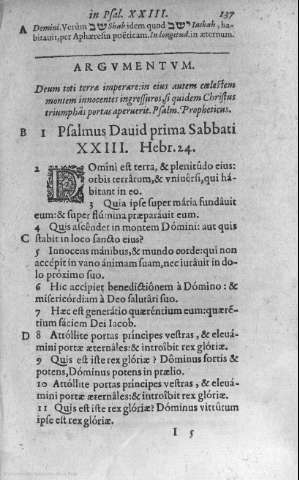 in Psal. XXIII. 137
A Demini. Verùm שב Shab idem quod ישב Iashab, ha-
bitauit, per Aphæresin poëticam. In longitud. in æternum.
ARGVMENTVM.
Deum toti terræ imperare: in eius autem cælestem
montem innocentes ingressuros, si quidem Christus
triumphās portas aperuerit. Psalm. Propheticus.
B 1 Psalmus Dauid prima Sabbati
XXIII. Hebr. 24.
2 DOmini est terra, & plenitúdo eius:
orbis terrárum, & vniuérsi, qui há-
bitant in eo.
3 Quia ipse super mária fundáuit
eum: & super flúmina præparáuit eum.
4 Quis ascédet in montem Dómini: aut quis
C stabit in loco sancto eius?
5 Innocens mánibus, & mundo corde: qui non
accépit in vano ánimam suam, nec iuráuit in do-
lo próximo suo.
6 Hic accípiet benedictiónem à Dómino: &
misericórdiam à Deo salutári suo.
7 Hæc est generátio quæréntium eum: quærē-
tium fáciem Dei Iacob.
D 8 Attóllite portas príncipes vestras, & eleuá-
mini portæ æternáles: & introíbit rex glóriæ.
9 Quis est iste rex glóriæ? Dóminus fortis &
potens, Dóminus potens in prælio.
10 Attóllite portas príncipes vestras, & eleuá-
mini portæ æternáles: & introíbit rex glóriæ.
11 Quis est iste rex glóriæ? Dóminus virtútum
ipse est rex glóriæ.
I 5